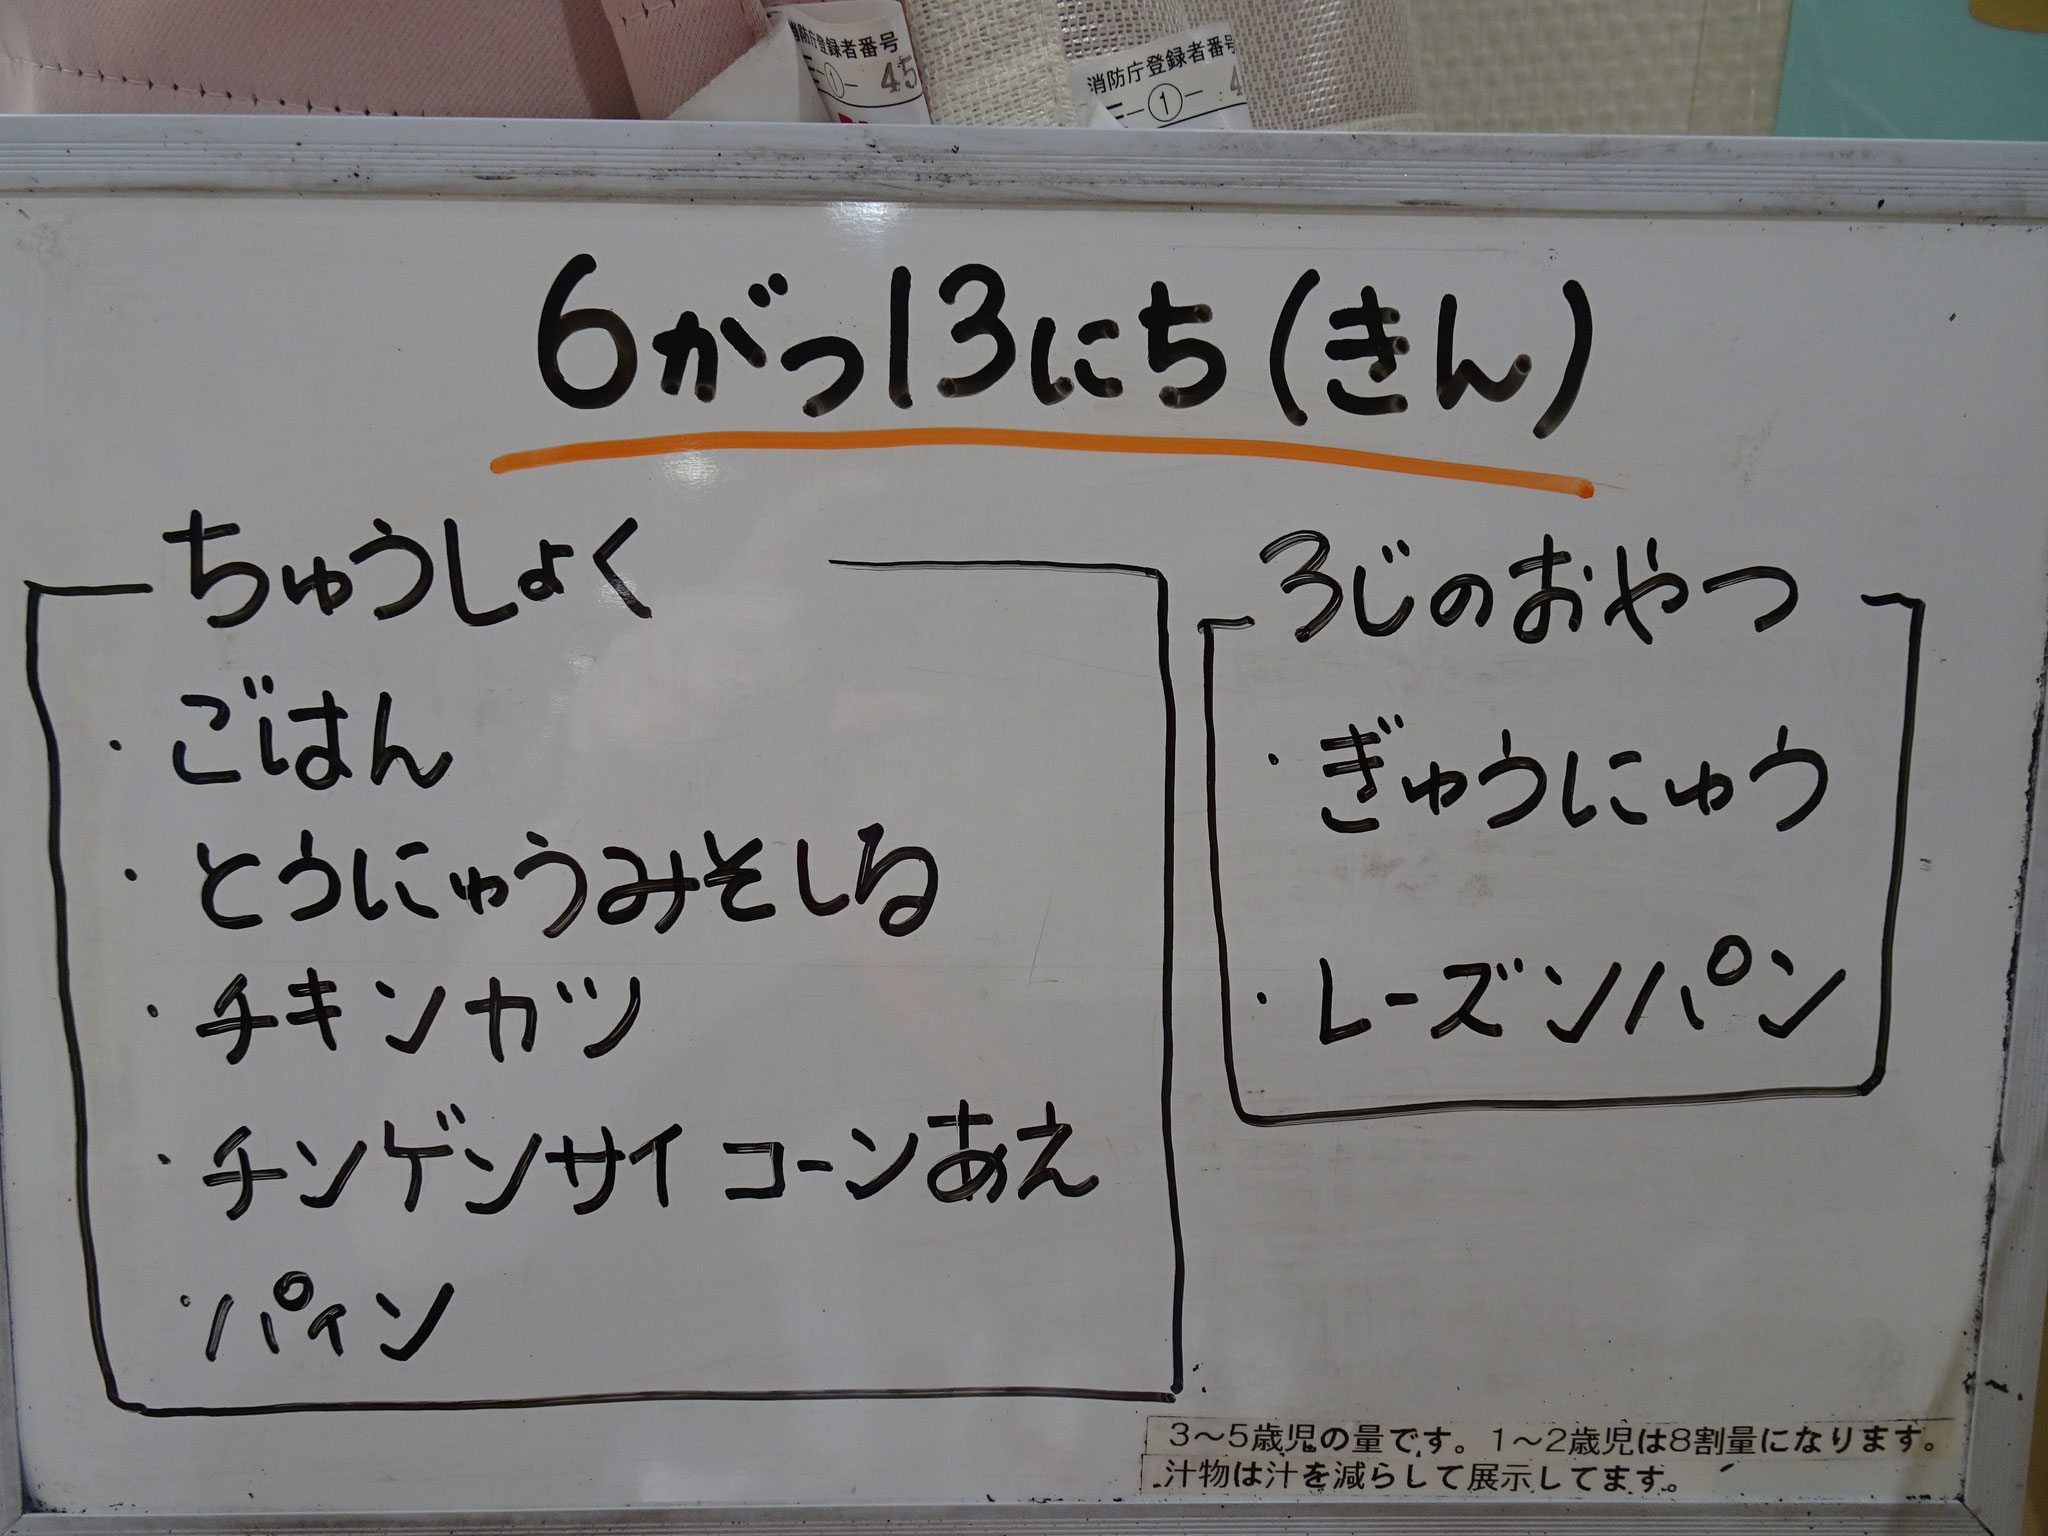 消防庁登録者番号
①- 45
消防庁登録者番号
-①- 4
6がつ13にち(きん)
ちゅうしょく
・ごはん
・とうにゅうみそしる
・チキンカツ
・チンゲンサイコーンあえ
・パイン
3じのおやつ
・ぎゅうにゅう
・レーズンパン
3〜5歳児の量です。1〜2歳児は8割量になります。
汁物は汁を減らして展示してます。